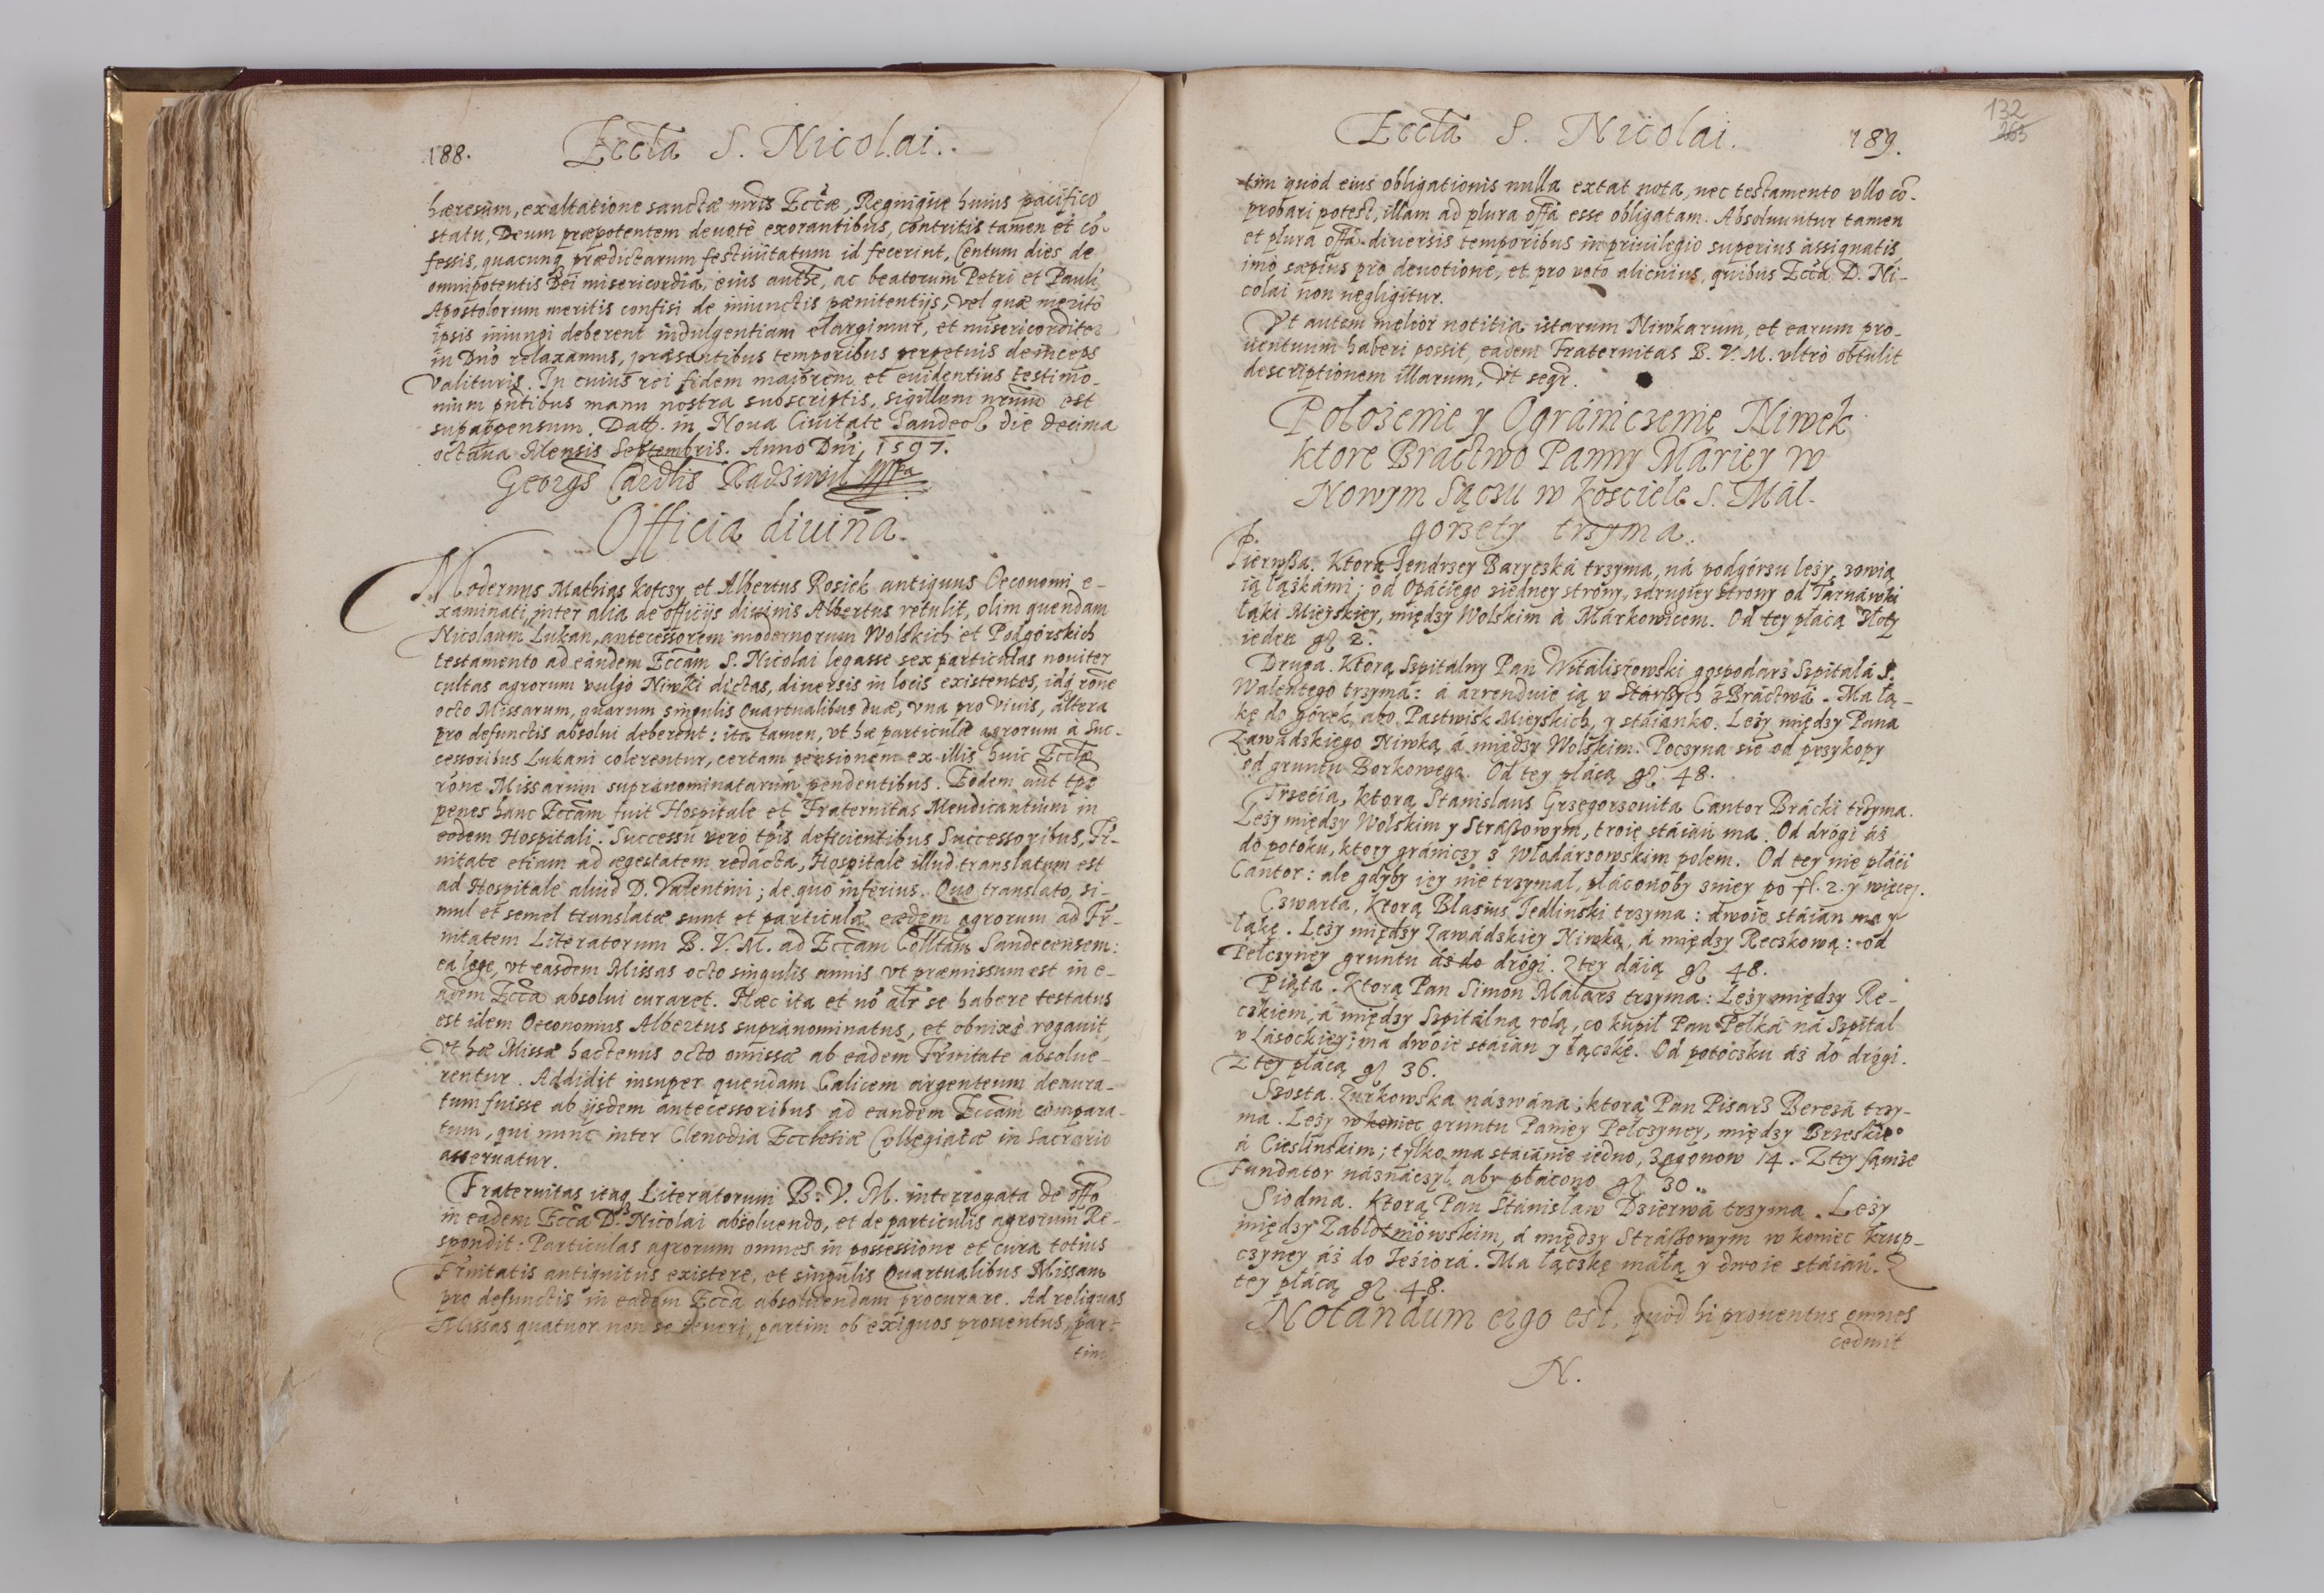 188. Eccła S. Nicolai.
hæresum, exaltatione sanctæ mris Eccæ, Regnique huius pacifico
statu, Deum præpotentem deuotè exorantibus, contritis tamen et co-
fessis, quacunq prædictarum festiuitatum id fecerint, Centum dies de
omnipotentis Dei misericordia, eius authe, ac beatorum Petri et Pauli
Apostolorum meritis confisi de iniunctis pænitentijs, vel quæ merito
ipsis iniungi deberent indulgentiam elargimur, et misericorditer
in Dno relaxamus, præsentibus temporibus perpetuis deinceps
valituris. In cuius rei fidem maiorem et euidentius testimo-
nium pntibus manu nostra subscriptis, sigillum nrum est
supappensum. Datt. in Noua Ciuitate Sandecz die decima
octaua Mensis Septembris. Anno Dni, 1597.
Georgs Cardlis Radziwil Mpa
Officia diuina.
Modernus Mathias Kotczy et Albertus Rosiek antiquus Oeconomi e-
xaminati, inter alia de officijs diuinis Albertus retulit, olim quendam
Nicolaum Lukan, antecessorem modernorum Wolskich et Podgórskich
testamento ad eandem Eccam S. Nicolai legasse sex particulas nouiter
cultas agrorum vulgo Niwki dictas, diuersis in locis existentes, idq rone
octo Missarum, quarum singulis Quartualibus duæ, vna pro viuis, altera
pro defunctis absolui deberent: ita tamen, vt hæ particulæ agrorum à suc-
cessoribus Lukani colerentur, certam pensionem ex illis huic Ecclæ
rone Missarum supranominatarum pendentibus. Eodem aut tpe
penes hanc Eccam fuit Hospitale et Fraternitas Mendicantium in
eodem Hospitali. Successu vero tpis deficientibus Successoribus, Fr-
nitate etiam ad ægestatem redacta, Hospitale illud translatum est
ad Hospitale aliud D. Valentini; de quo inferius. Quo translato, si-
mul et semel translatæ sunt et particulæ eædem agrorum ad Fr-
nitatem Literatorum B. V. M. ad Eccam Colltam Sandecensem:
ea lege, vt easdem Missas octo singulis annis vt præmissum est in e-
adem Ecca absolui curaret. Hæc ita et no alr se habere testatus
est idem Oeconomus Albertus supranominatus, et obnixè rogauit,
vt hæ Missæ hactenus octo omissæ ab eadem Frnitate absolue-
rentur. Addidit insuper quendam Calicem argenteum deaura-
tum fuisse ab ijsdem antecessoribus ad eandem Eccam compara-
tum, qui nunc inter Clenodia Ecclesiæ Collegiatæ in Sacrario
asseruatur.
Fraternitas itaq Literatorum B. V. M. interrogata de offo
in eadem Ecca D. Nicolai absoluendo, et de particulis agrorum Re-
spondit: Particulas agrorum omnes in possessione et cura totius
Frnitatis antiquitus existere, et singulis Quartualibus Missam
pro defunctis in eadem Ecca absoluendam procurare. Ad reliquas
Missas quatuor non se teneri, partim ob exiguos prouentus, par-
tim
Eccła S. Nicolai. 189.
132
263
tim quod eius obligationis nulla extat nota, nec testamento vllo co-
probari potest, illam ad plura offa esse obligatam. Absoluuntur tamen
et plura offa diuersis temporibus in priuilegio superius assignatis,
imò sæpius pro deuotione, et pro voto alicuius, quibus Ecca D. Ni-
colai non negligitur.
Vt autem melior notitia istarum Niwkarum, et earum pro-
uentuum haberi possit, eadem Fraternitas B. V. M. vltrò obtulit
descriptionem illarum, vt seqr.
Położenie y Ográniczenie Niwek
ktore Bractwo Panny Máriey w
Nowym Sączu w kościele S. Mál-
gorzety trzyma.
Pierwßa. Ktorą Jendrzey Baryczká trzyma, ná podgórzu leży, zowią
ią łążkámi; od Opáćiego ziedney strony, zdrugiey strony od Tarnáwki
łąki Mieyskiey, między Wolskim á Márkowicem. Od tey płácą złoty
ieden gł 2.
Druga. Ktorą Szpitalny Pan Witáliszowski gospodarz Szpitalá S.
Walentego trzyma: á arrenduie ią v Stárßych z Bráctwá. Ma łą-
kę do górek, abo Pastwisk Mieyskich, y stáianko. Leży między Pana
Zawadzkiego Niwką á między Wolskim. Poczyna sie od przykopy
od gruntu Borkowego. Od tey płácą gł 48.
Trzećia, ktorą Stanislaus Grzegorzouita Cantor Brácki trzyma.
Leży między Wolskim y Stráßowym, troie stáian ma. Od drógi áż
do potoku, ktory grániczy z Włodárzowskim polem. Od tey nie płáći
Cantor: ale gdyby iey nie trzymał, płáconoby zniey po fl. 2. y więcey.
Czwarta, ktorą Blasius Jedlinski trzyma: dwoie stáian ma y
łąkę. Leży między Zawádzkiey Niwką, á między Reczkową: od
Pełczyney gruntu áż do drógi. Ztey dáią gł 48.
Piąta. Ktorą Pan Simon Málarz trzyma: Leży między Re-
czkiem, á między Szpitálną rolą, co kupił Pan Pełká ná Szpital
v Lásockiey; ma dwoie stáian y łączkę. Od potoczku áż do drógi.
Z tey płácą gł 36.
Szosta. Zurkowska názwána; ktorą Pan Pisarz Berezá trzy-
ma. Leży w koniec gruntu Pániey Pełczyney, między Brzeskie
á Cieslinskim; tylko ma stáianie iedno, zagonow 14. Z tey sąmże
Fundator náznáczył, aby płácono gł 30.
Siodma. Ktorą Pan Stánisław Dzierwá trzyma. Leży
między Zabłotniowskim, á między Stráßowym w koniec Krup-
czyney áż do Jeźiorá. Ma łączkę máłą y dwoie stáian. Z
tey płácą gł 48.
Notandum ergo est, quòd hi prouentus omnes
cedunt
N.